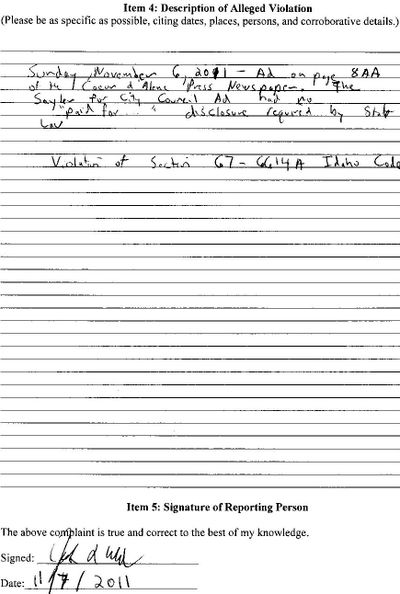 Item 4: Description of Alleged Violation
(Please be as specific as possible, citing dates, places, persons, and corroborative details.)
Sunday, November 6, 2011 - Ad on page 8AA
of the Coeur d'Alene Press Newspaper. The
Sayler for City Council Ad had no
"paid for..." disclosure required by State
Law
Violation of Section 67-6614A Idaho Code
Item 5: Signature of Reporting Person
The above complaint is true and correct to the best of my knowledge.
Signed:
Date: 11/7/2011